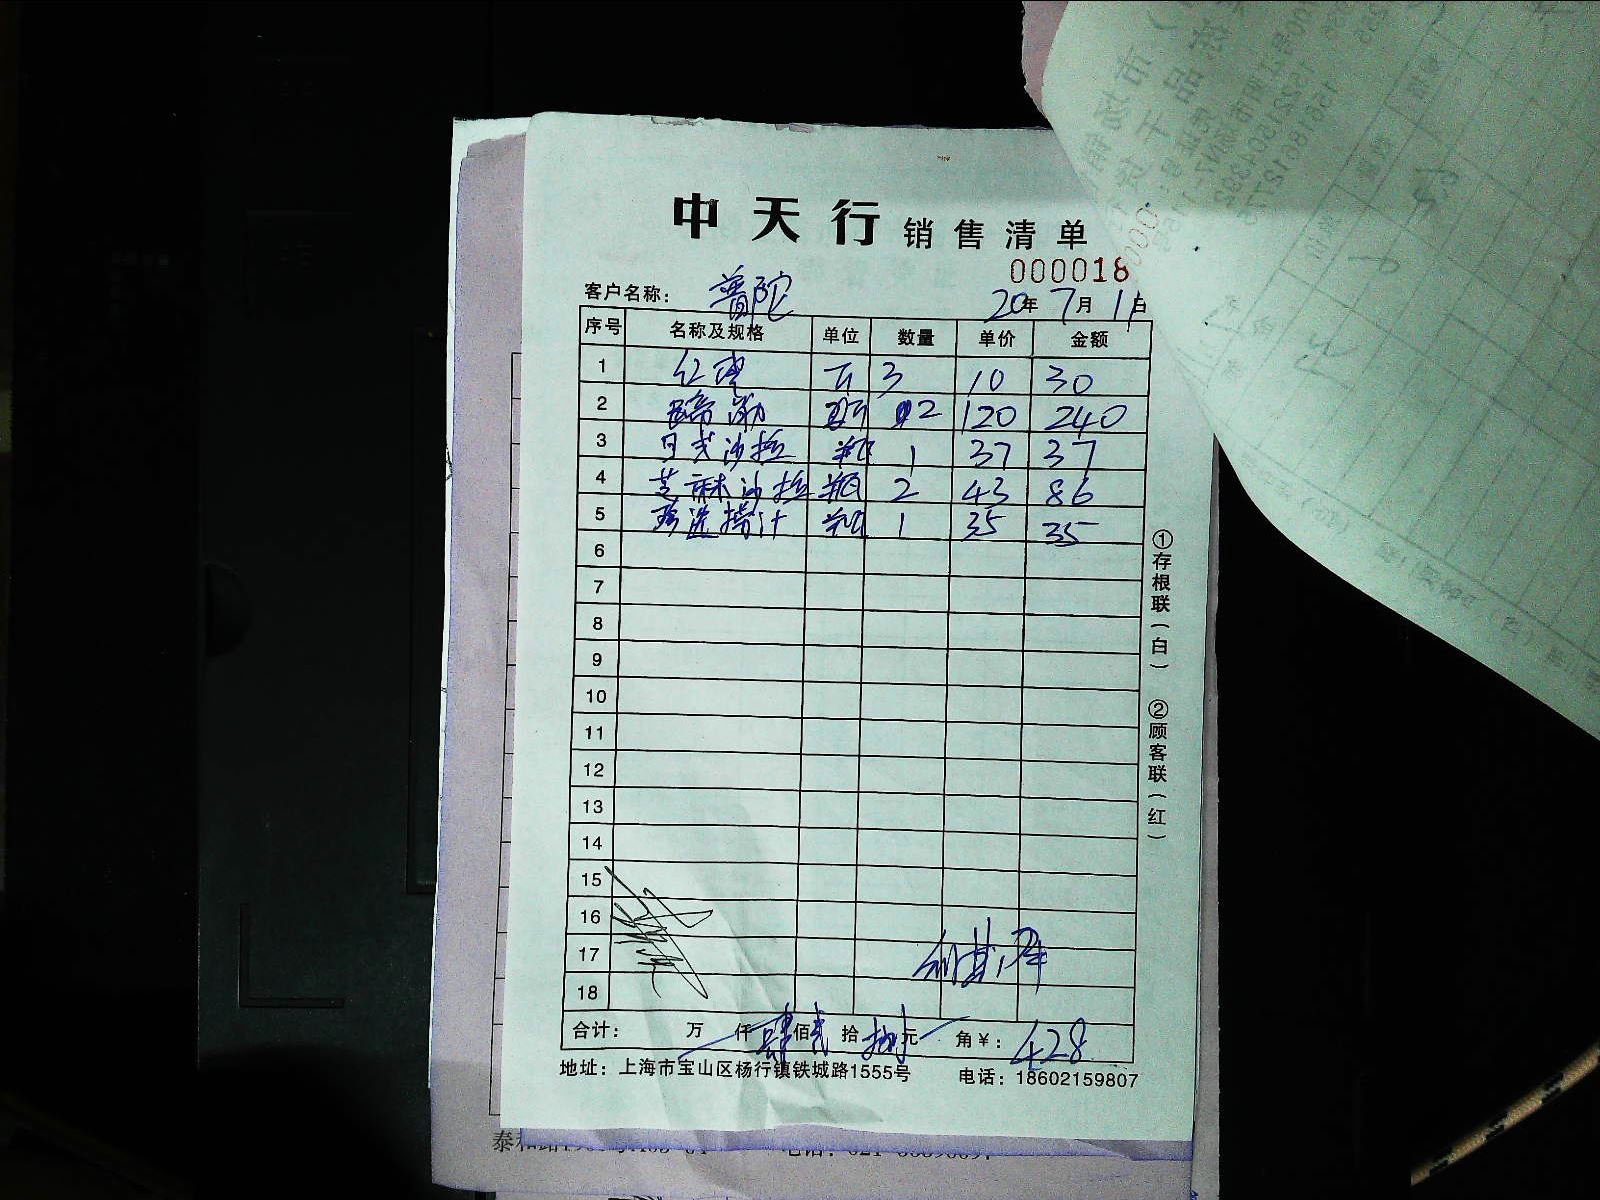 中天行 销售清单
000018
客户名称: 普陀 20年7月11日
序号 名称及规格 单位 数量 单价 金额
1 红枣 斤 3 10 30
2 2 120 240
3 日式沙拉 瓶 1 37 37
4 芝麻沙拉 瓶 2 43 86
5 捞汁 瓶 1 35 35
6
7
8
9
10
11
12
13
14
15
16
17
18
合计: 万 仟 肆佰 贰拾 捌元 角 ¥: 428
地址: 上海市宝山区杨行镇铁城路1555号 电话: 18602159807
①存根联(白) ②顾客联(红)